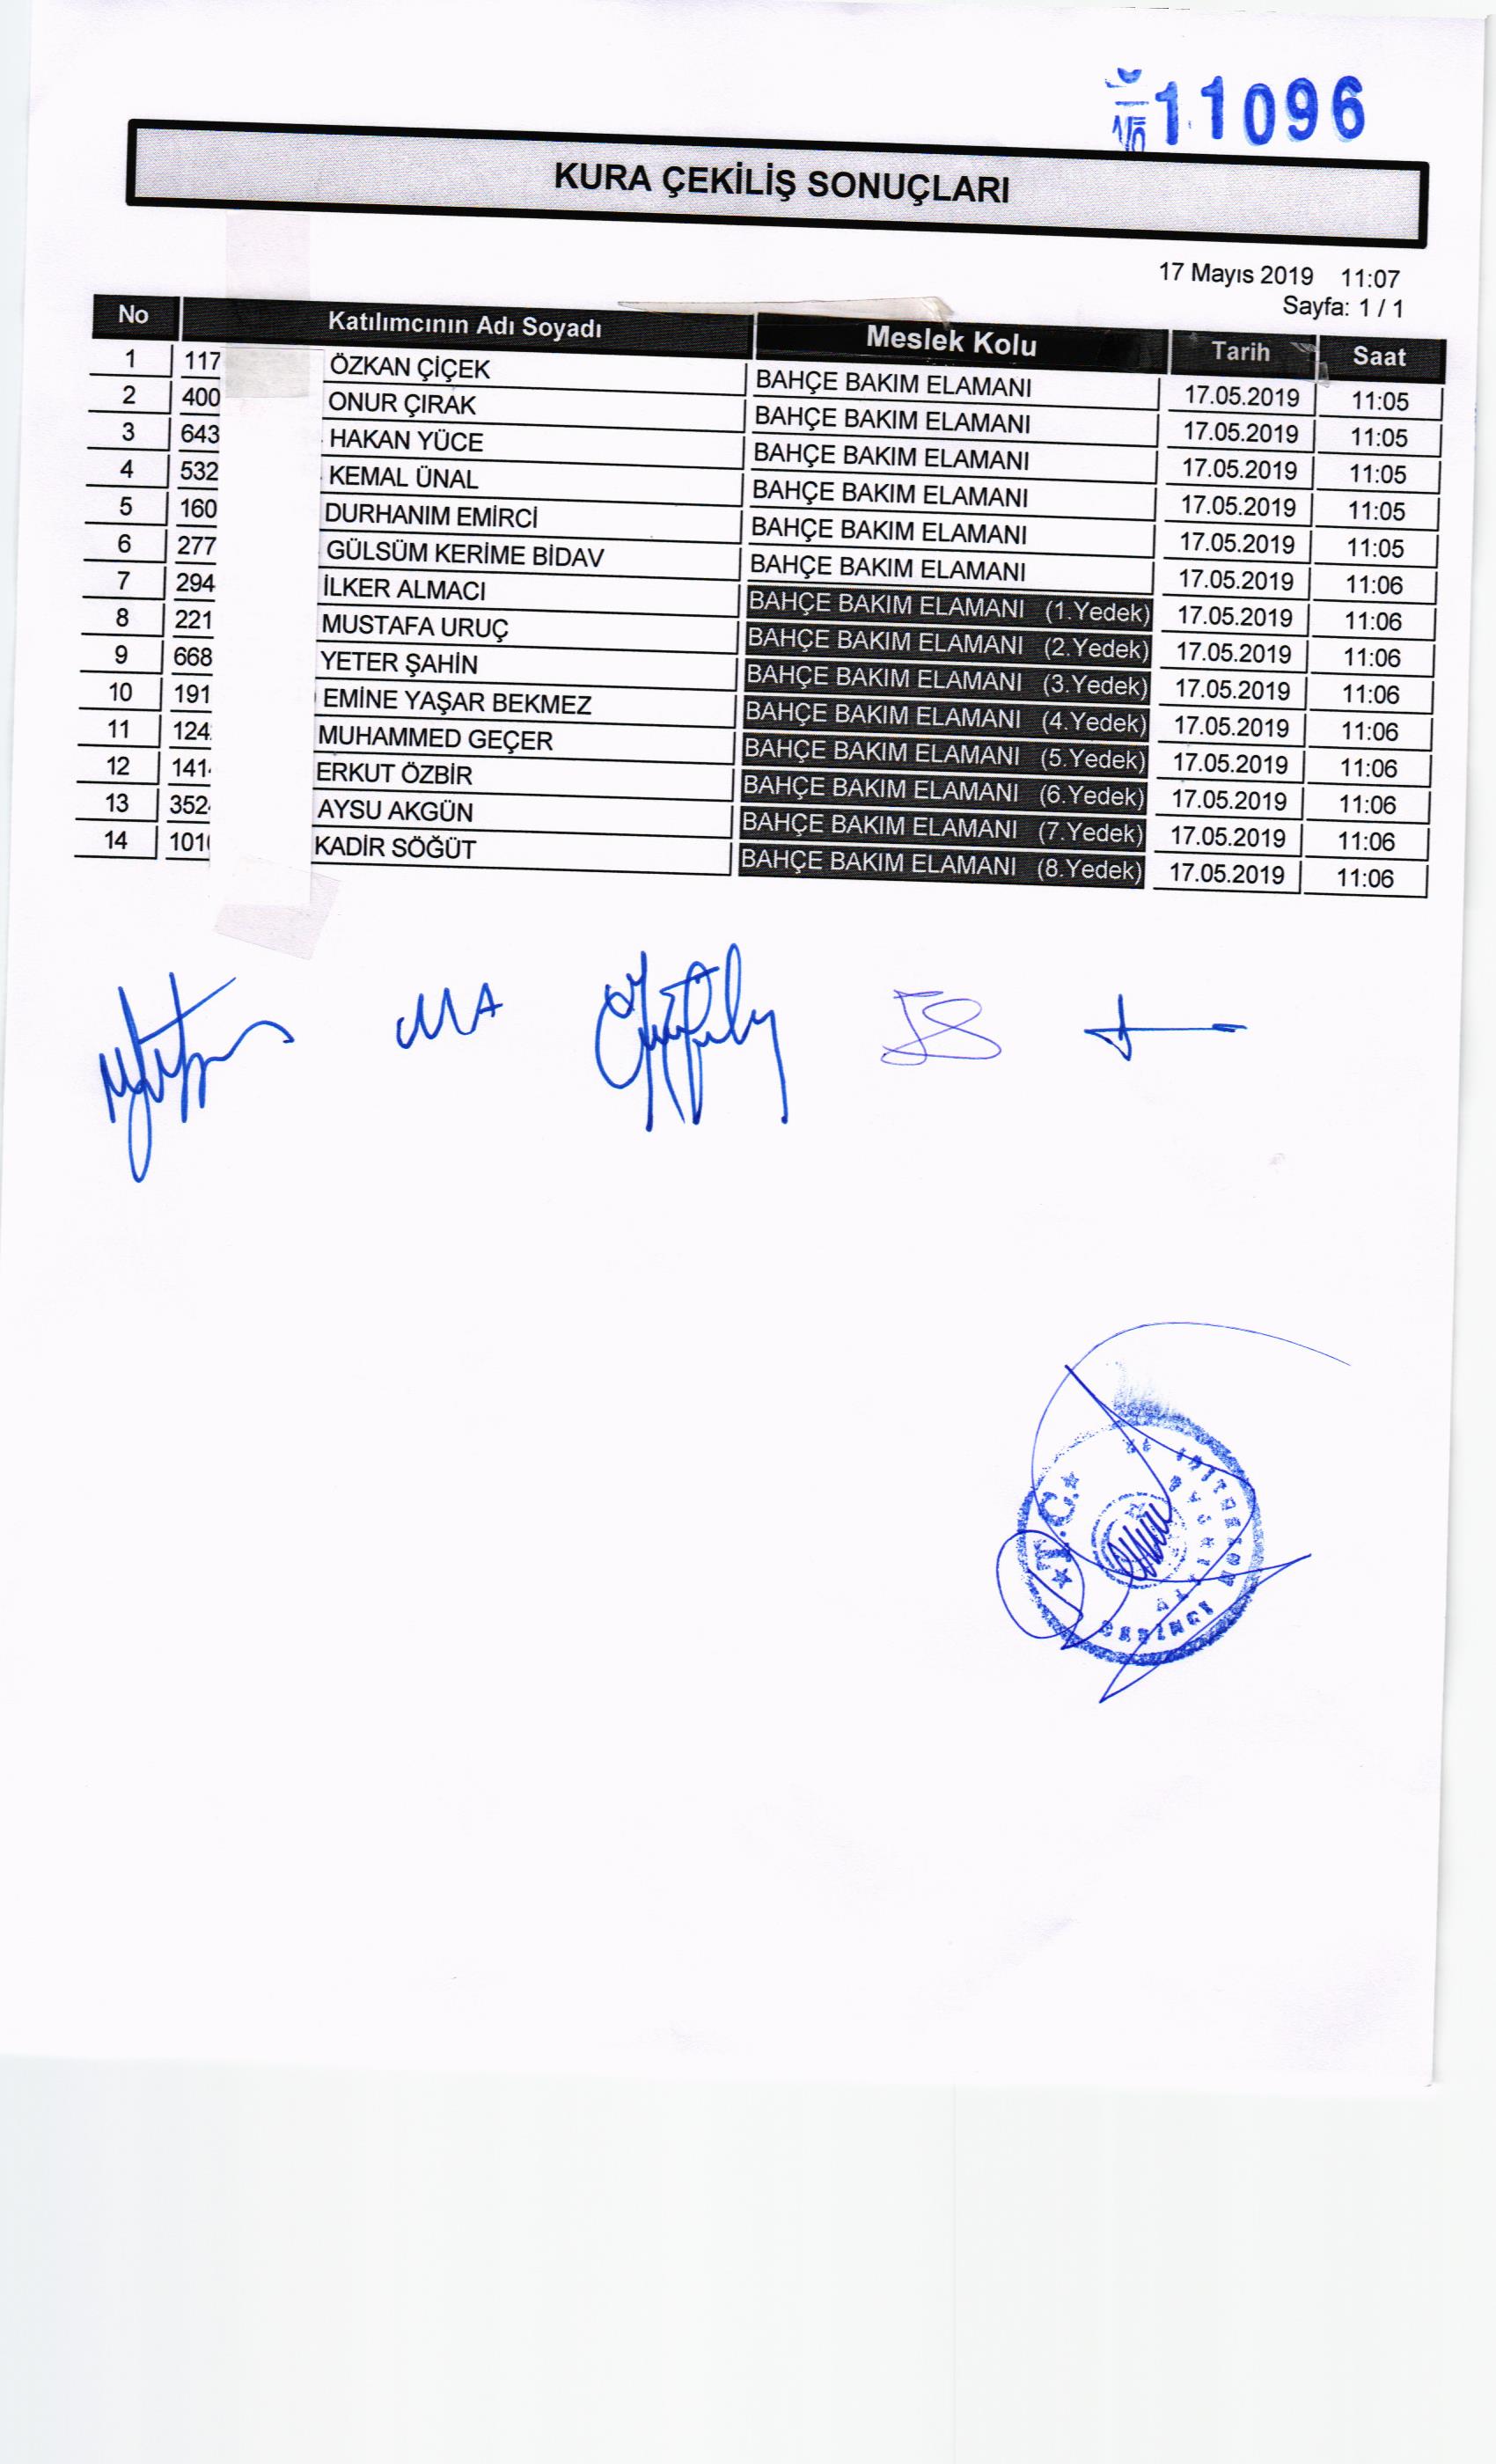 11096
KURA ÇEKİLİŞ SONUÇLARI
17 Mayıs 2019 11:07
Sayfa: 1 / 1
No Katılımcının Adı Soyadı Meslek Kolu Tarih Saat
1 117 ÖZKAN ÇİÇEK BAHÇE BAKIM ELAMANI 17.05.2019 11:05
2 400 ONUR ÇIRAK BAHÇE BAKIM ELAMANI 17.05.2019 11:05
3 643 HAKAN YÜCE BAHÇE BAKIM ELAMANI 17.05.2019 11:05
4 532 KEMAL ÜNAL BAHÇE BAKIM ELAMANI 17.05.2019 11:05
5 160 DURHANIM EMİRCİ BAHÇE BAKIM ELAMANI 17.05.2019 11:05
6 277 GÜLSÜM KERİME BİDAV BAHÇE BAKIM ELAMANI 17.05.2019 11:06
7 294 İLKER ALMACI BAHÇE BAKIM ELAMANI (1.Yedek) 17.05.2019 11:06
8 221 MUSTAFA URUÇ BAHÇE BAKIM ELAMANI (2.Yedek) 17.05.2019 11:06
9 668 YETER ŞAHİN BAHÇE BAKIM ELAMANI (3.Yedek) 17.05.2019 11:06
10 191 EMİNE YAŞAR BEKMEZ BAHÇE BAKIM ELAMANI (4.Yedek) 17.05.2019 11:06
11 124 MUHAMMED GEÇER BAHÇE BAKIM ELAMANI (5.Yedek) 17.05.2019 11:06
12 141 ERKUT ÖZBİR BAHÇE BAKIM ELAMANI (6.Yedek) 17.05.2019 11:06
13 352 AYSU AKGÜN BAHÇE BAKIM ELAMANI (7.Yedek) 17.05.2019 11:06
14 101 KADİR SÖĞÜT BAHÇE BAKIM ELAMANI (8.Yedek) 17.05.2019 11:06
T.C.